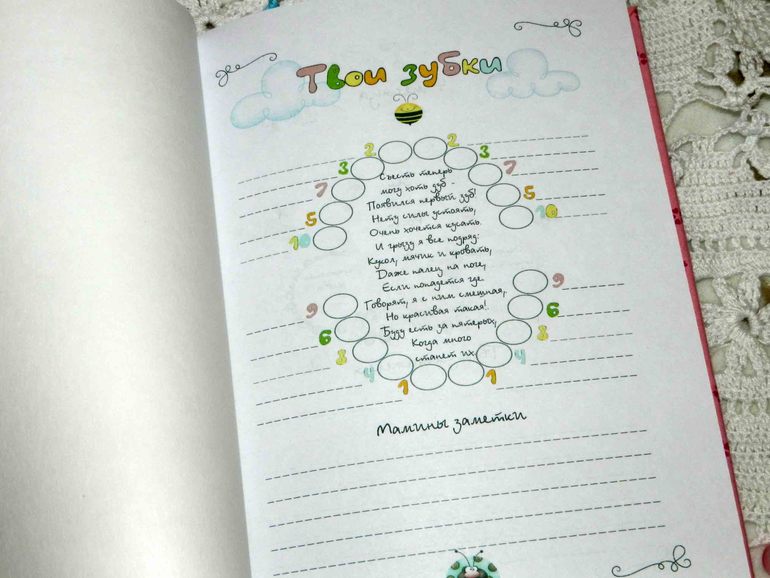 Твои зубки
2 2
3 3
7 7
5 5
10 10
Съесть теперь
могу хоть дуб -
Появился первый зуб!
Нету силы устоять,
Очень хочется кусать.
И грызу я все подряд:
Кукол, мячик и кровать,
Даже палец на ноге,
Если попадется где.
Говорят, я с ним смешная,
Но красивая такая!
Буду есть за пятерых,
Когда много
станет их.
9 9
6 6
8 8
4 4
1 1
Мамины заметки